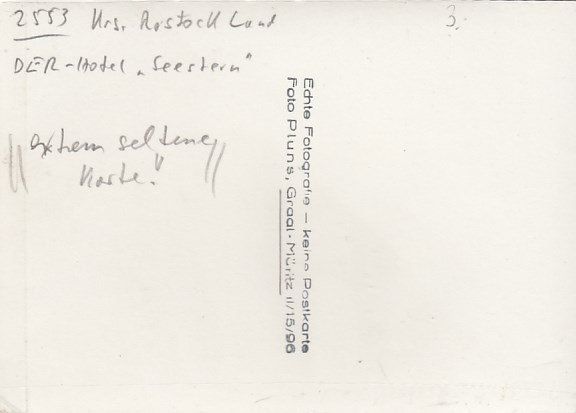 2553 Krs. Rostock Land
3.-
DER-Hotel „Seestern"
extrem seltene
Karte!
Echte Fotografie — keine Postkarte
Foto Pluns, Graal-Müritz II/15/96